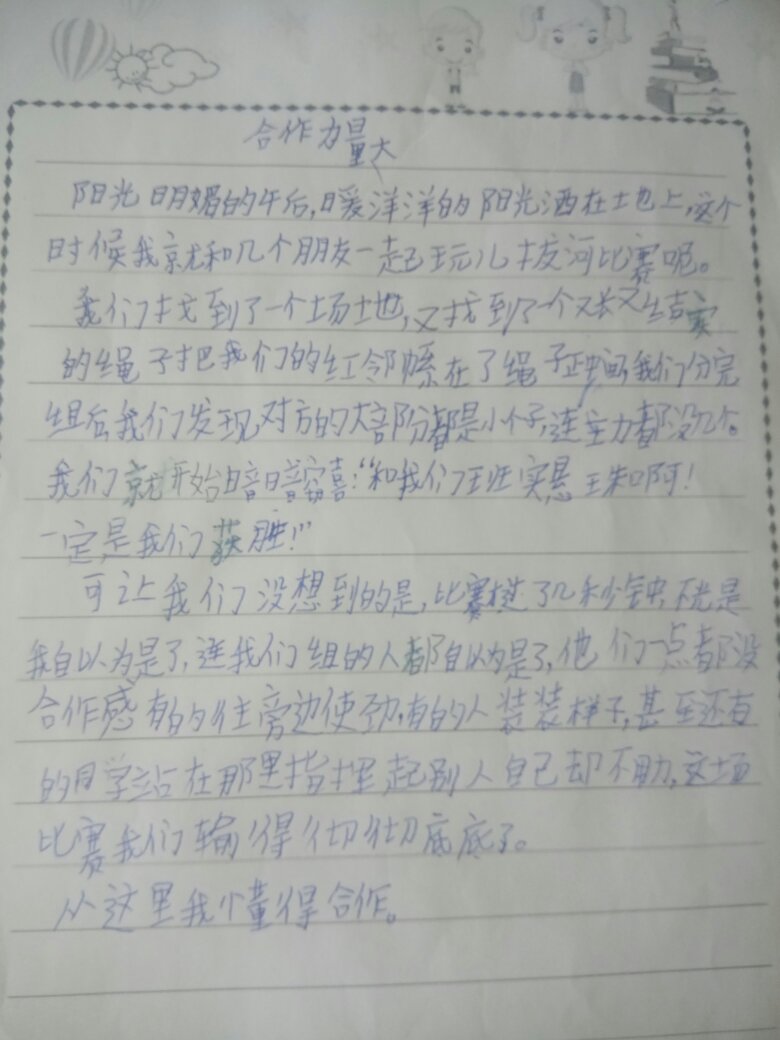 合作力量大
阳光明媚的午后,暖洋洋的阳光洒在土地上,这个
时候我就和几个朋友一起玩儿拔河比赛呢。
我们找到了一个场地,又找到了一个又长又结实
的绳子把我们的红领巾系在了绳子正中间我们分完
组后我们发现对方的大部份都是小个子,连主力都没几个。
我们就开始暗暗窃喜:“和我们班实
一定是我们获胜!”
可让我们没想到的是,比赛进了几秒钟,不光是
我自以为是了,连我们组的人都自以为是了,他们一点都没
合作感有的往旁边使劲,有的人装装样子,甚至还有
的同学站在那里指挥起别人自己却不助,这场
比赛我们输得彻彻底底了。
从这里我懂得合作。